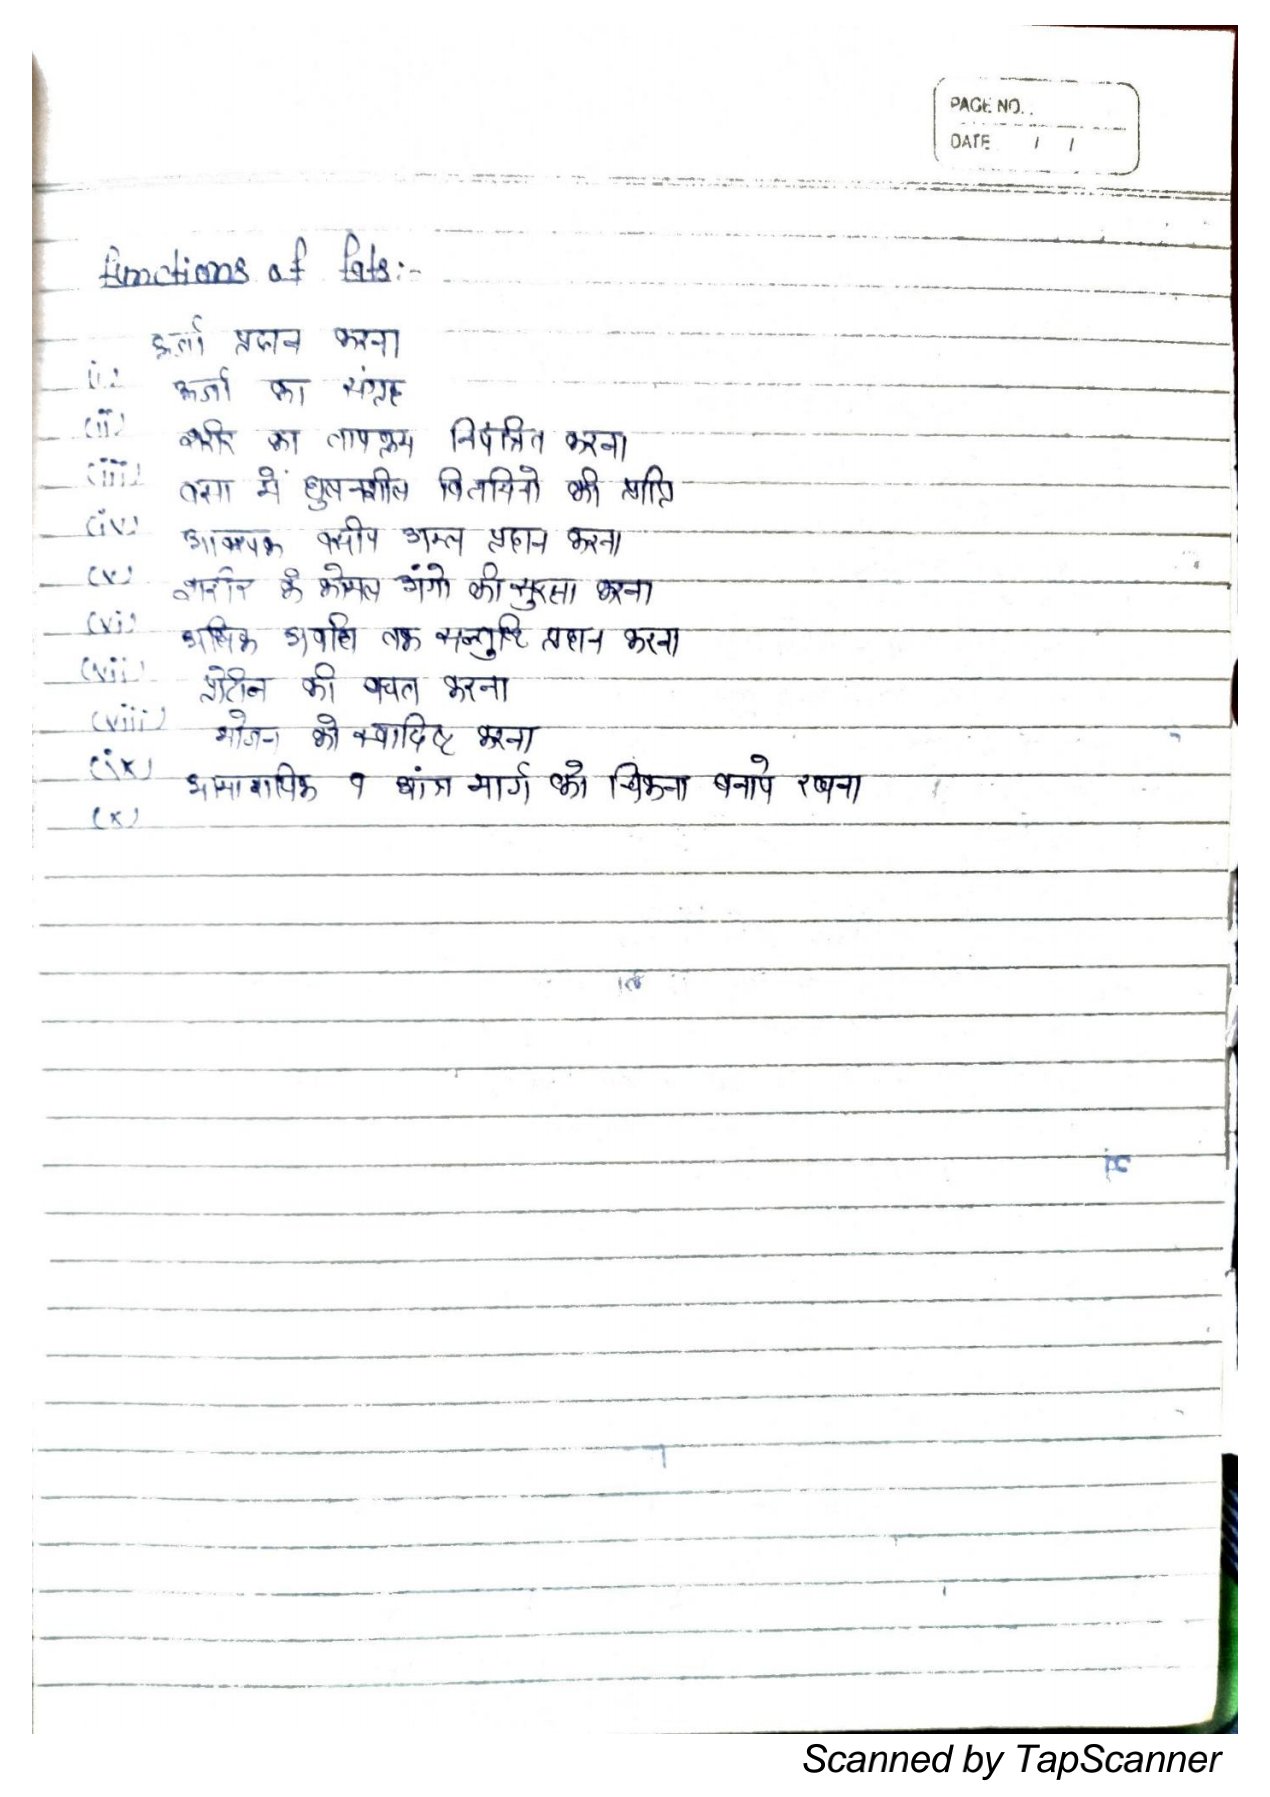 PAGE NO.
DATE / /
functions of fats:-
ऊर्जा प्रदान करना
(i) ऊर्जा का संग्रह
(ii) शरीर का तापक्रम नियंत्रित करना
(iii) वसा में घुलनशील विटामिनो की प्राप्ति
(iv) आवश्यक वसीय अम्ल प्रदान करना
(v) शरीर के कोमल अंगो की सुरक्षा करना
(vi) अधिक अवधि तक सन्तुष्टि प्रदान करना
(vii) प्रोटीन की बचत करना
(viii) भोजन को स्वादिष्ट करना
(ix) आमाशयिक व आंत्र मार्ग को चिकना बनाये रखना
(x)
Scanned by TapScanner